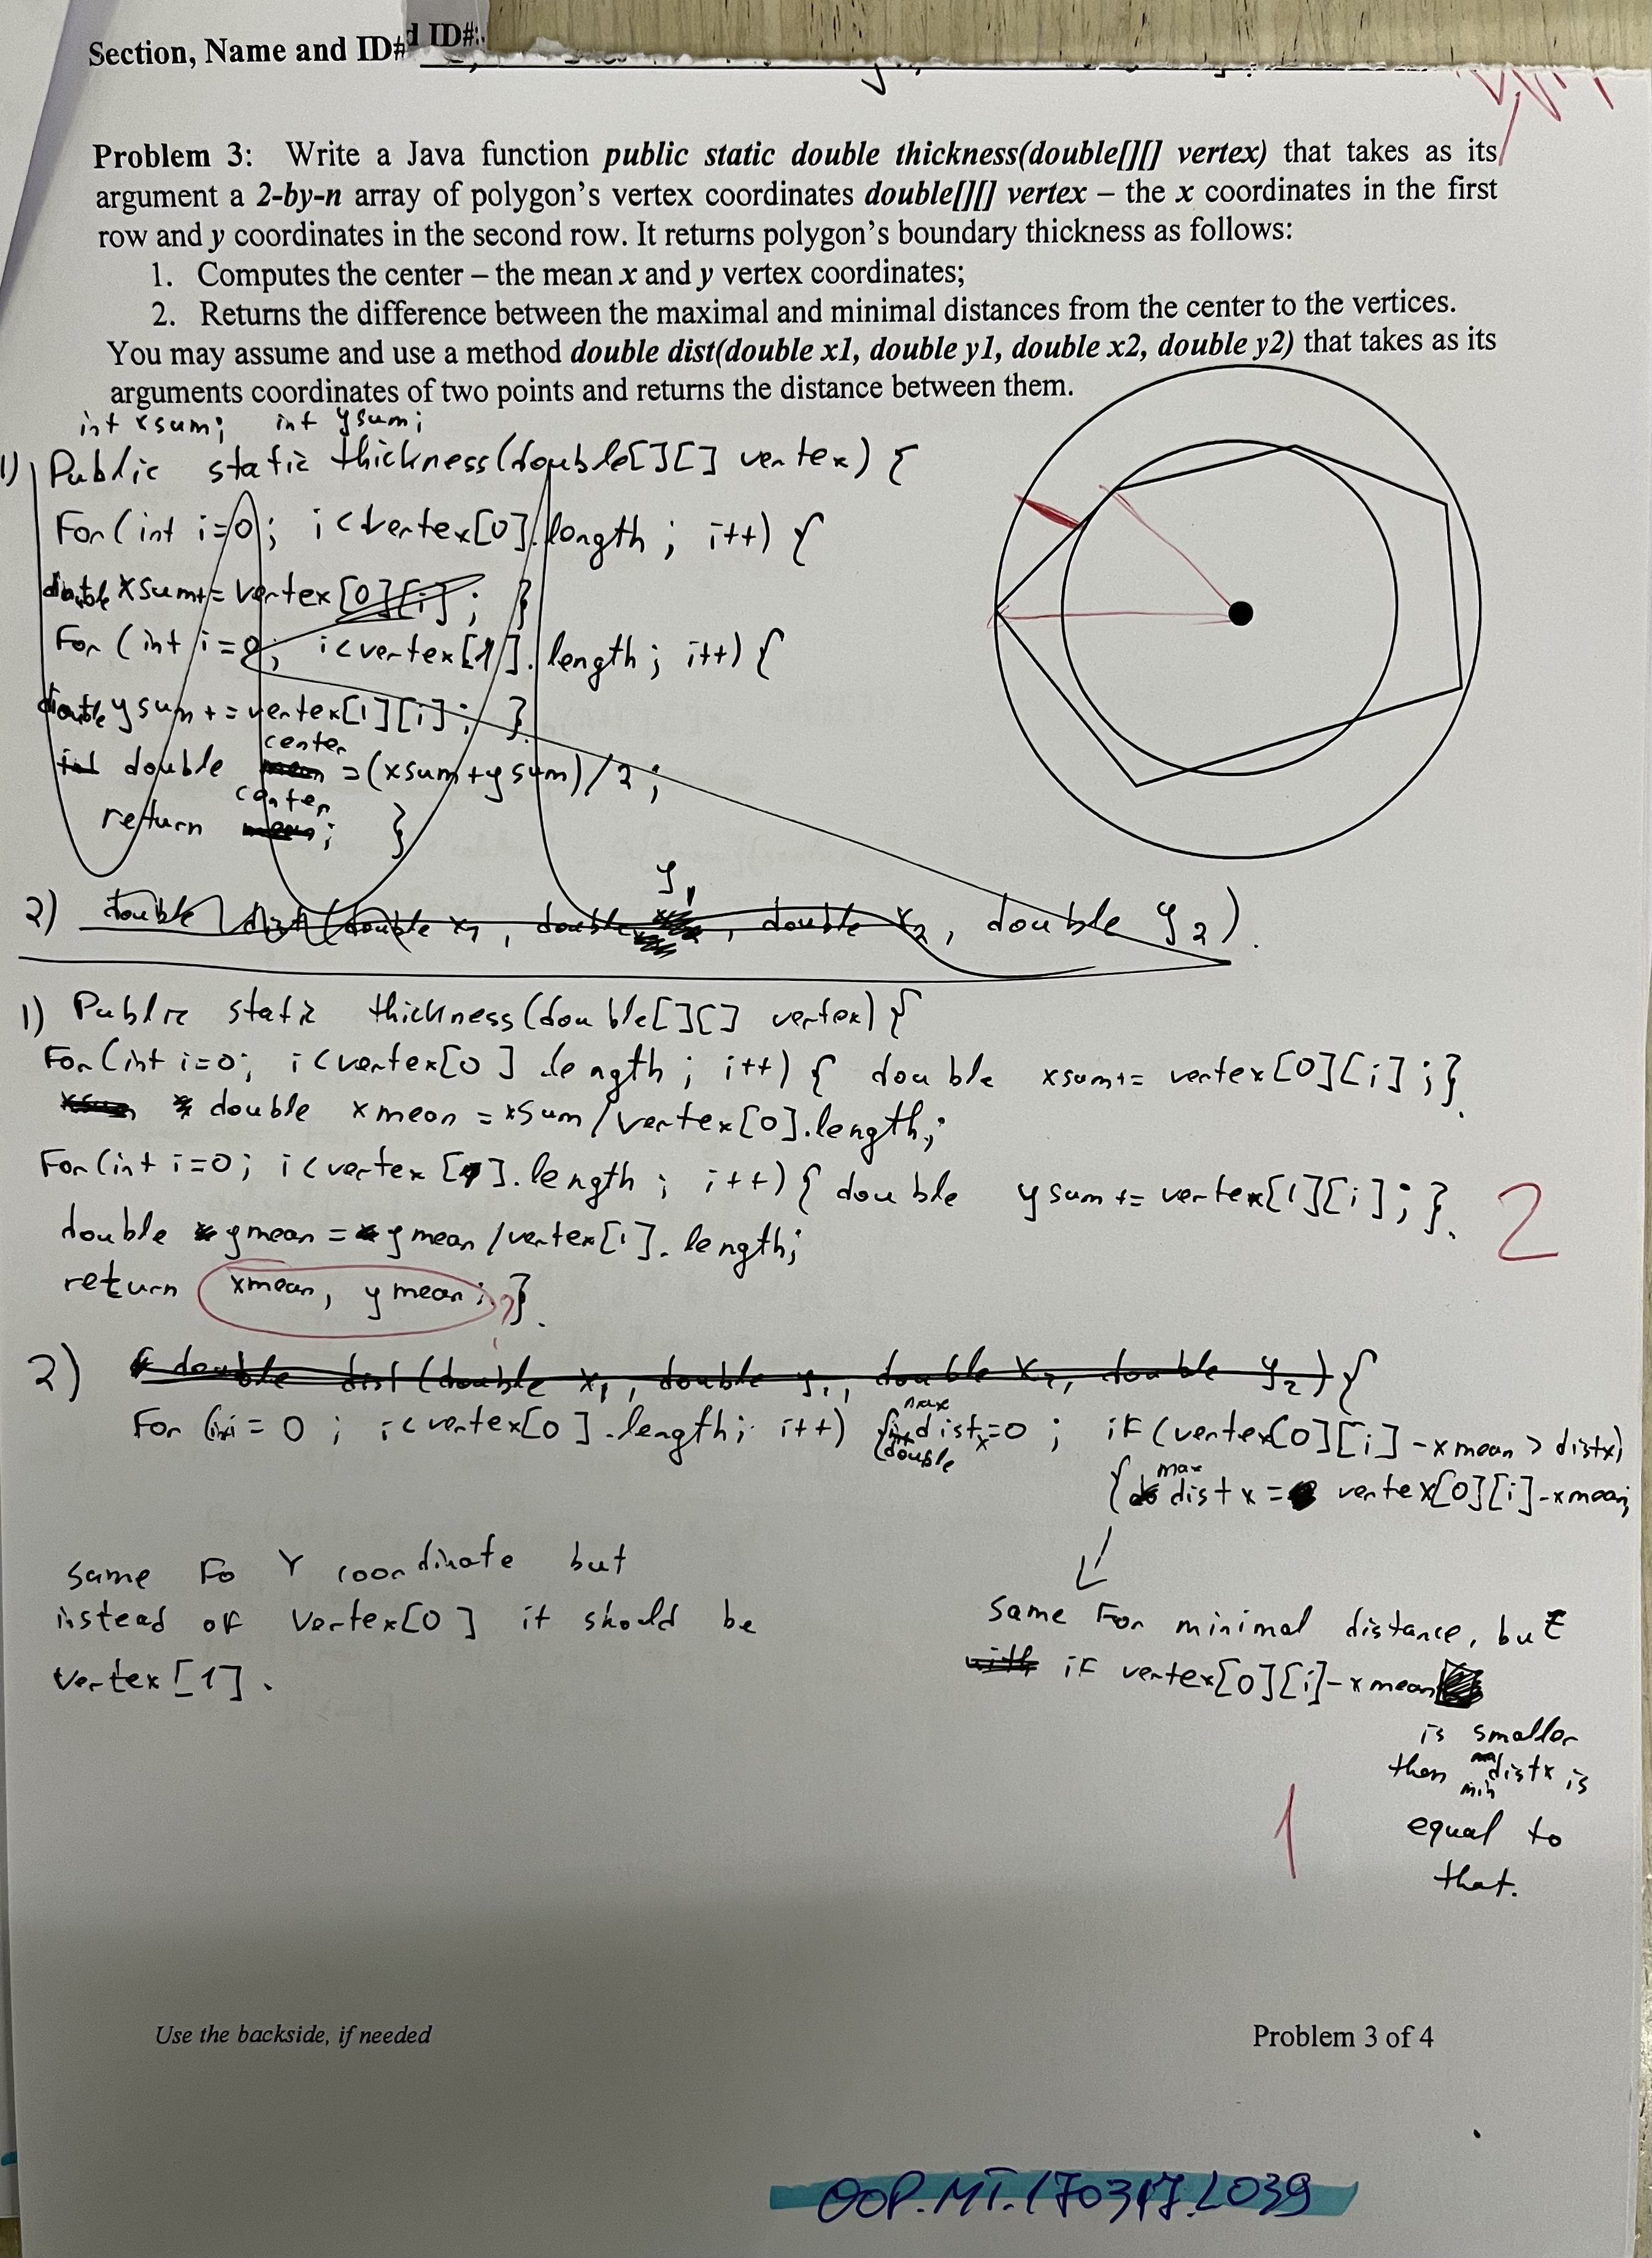 Section, Name and ID#
d ID#:
Problem 3: Write a Java function public static double thickness(double[][] vertex) that takes as its
argument a 2-by-n array of polygon's vertex coordinates double[][] vertex – the x coordinates in the first
row and y coordinates in the second row. It returns polygon's boundary thickness as follows:
1. Computes the center – the mean x and y vertex coordinates;
2. Returns the difference between the maximal and minimal distances from the center to the vertices.
You may assume and use a method double dist(double x1, double y1, double x2, double y2) that takes as its
arguments coordinates of two points and returns the distance between them.
int xsum; int ysum;
1) Public static thickness(double[][] vertex) {
For(int i=0; i<vertex[0].length; i++) {
double xsum+=vertex[0][i]; }
For (int i=0; i<vertex[1].length; i++) {
double ysum+=vertex[1][i]; }
int double center =(xsum+ysum)/2;
return center; }
2) double dist(double x1, double y1, double x2, double y2).
1) Public static thickness(double[][] vertex) {
For(int i=0; i<vertex[0].length; i++) { double xsum+= vertex[0][i];}
double xmean = xsum/vertex[0].length;
For(int i=0; i<vertex[1].length; i++) { double ysum+= vertex[1][i];}. 2
double ymean = ymean/vertex[1].length;
return xmean, ymean; }.
2) double dist(double x1, double y1, double x2, double y2) {
For (i = 0; i<vertex[0].length; i++) { double max distx=0; if(vertex[0][i]-xmean > distx)
{ max distx = vertex[0][i]-xmean;
same Fo Y coordinate but
instead of vertex[0] it should be
vertex[1].
same For minimal distance, but
with if vertex[0][i]-xmean
is smaller
then min distx is
equal to
that.
1
Use the backside, if needed
Problem 3 of 4
OOP.MT.170317.L039